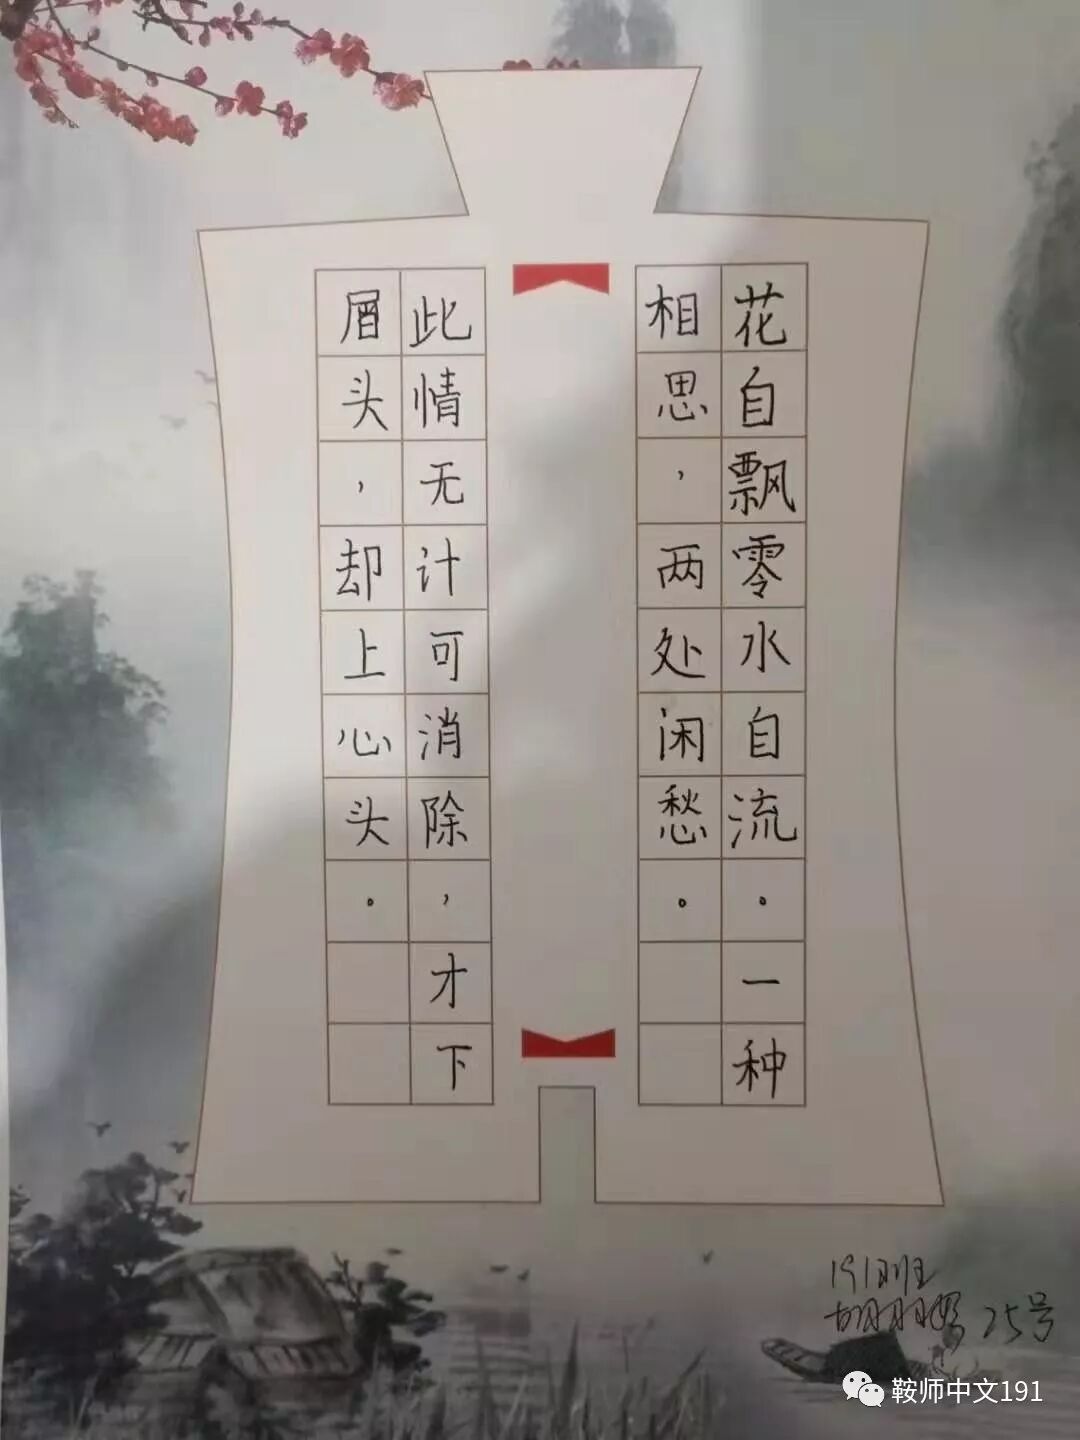 花自飘零水自流。一种
相思，两处闲愁。
此情无计可消除，才下
眉头，却上心头。
191班
25号
鞍师中文191